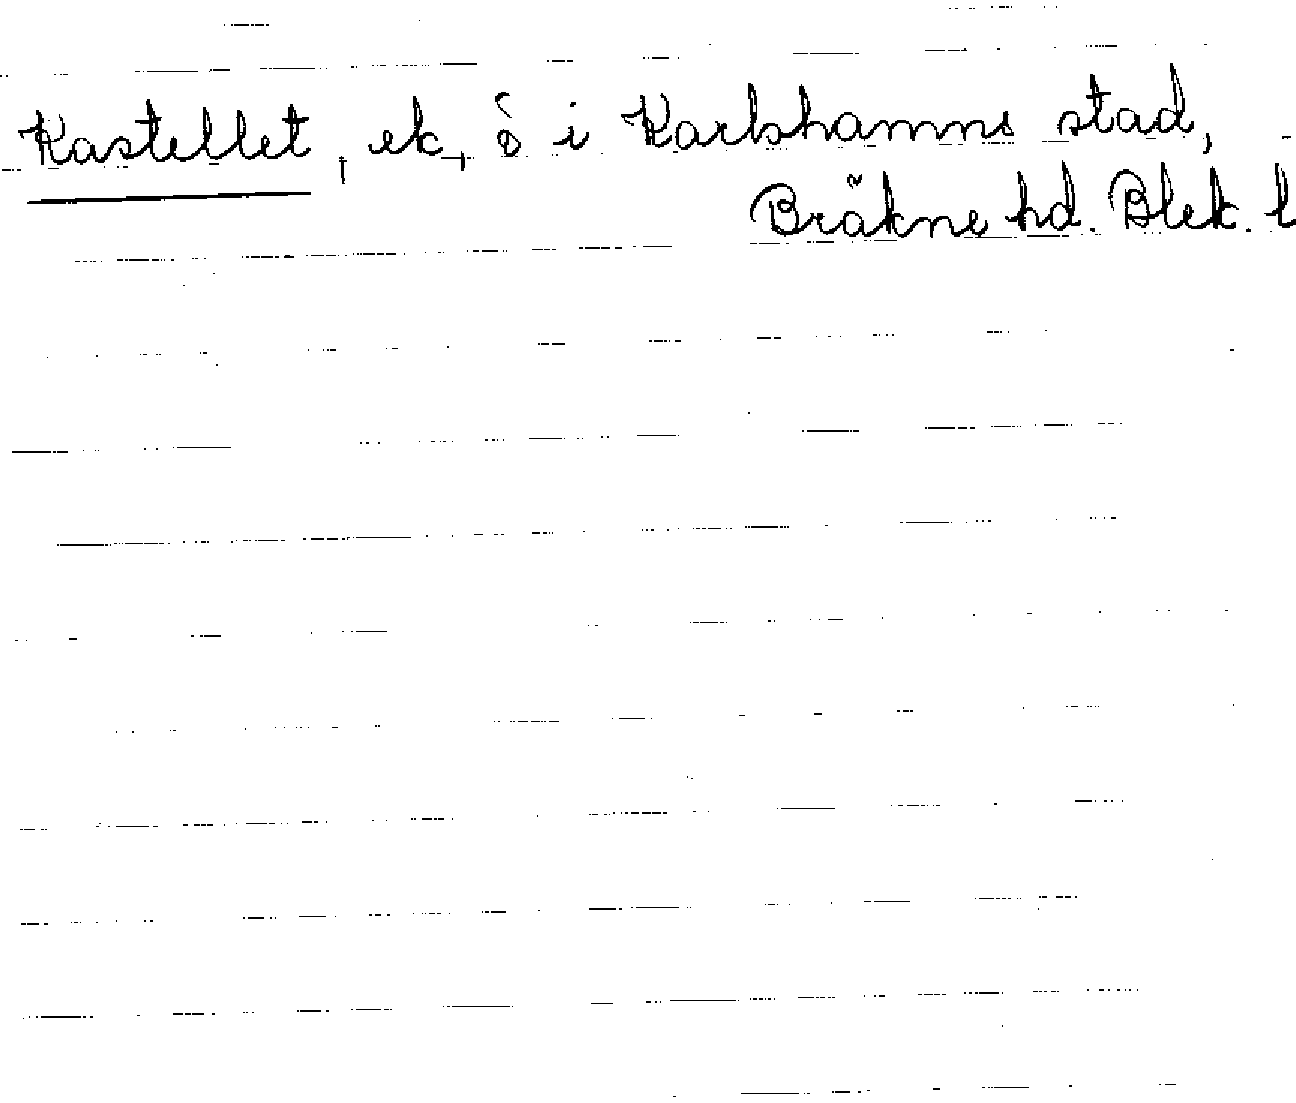 Kastellet, ek, ö i Karlshamns stad,
Bräkne hd. Blek. l